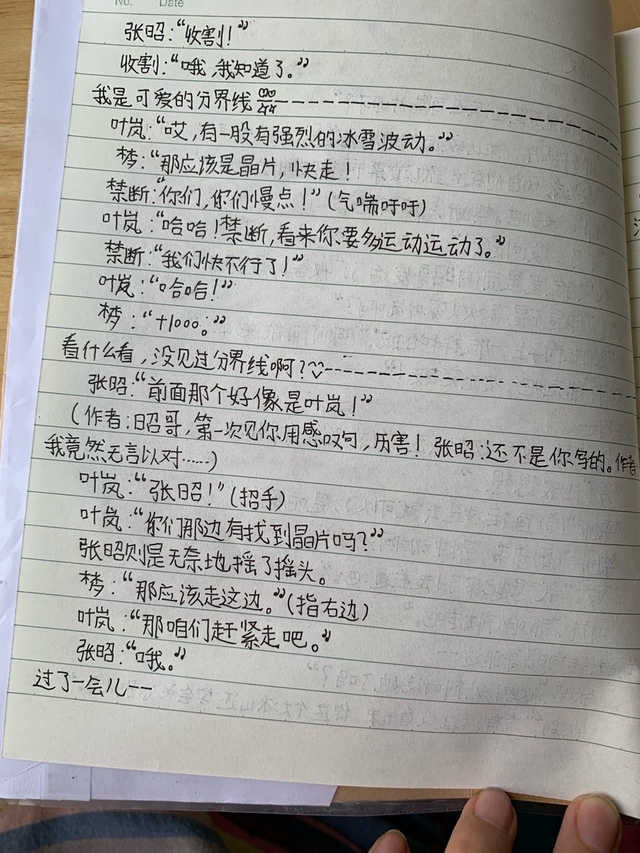 No. Date
张昭:“收割!”
收割:“哦,我知道了。”
我是可爱的分界线
叶岚:“哎,有一股有强烈的冰雪波动。”
梦:“那应该是晶片,快走!
禁断:“你们,你们慢点!”(气喘吁吁)
叶岚:“哈哈!禁断,看来你要多运动运动了。”
禁断:“我们快不行了!”
叶岚:“哈哈!”
梦:“+1000。”
看什么看,没见过分界线啊?
张昭:“前面那个好像是叶岚!”
(作者:昭哥,第一次见你用感叹句,厉害!张昭:还不是你写的。作者:
我竟然无言以对……)
叶岚:“张昭!”(招手)
叶岚:“你们那边有找到晶片吗?”
张昭则是无奈地摇了摇头。
梦:“那应该走这边。”(指右边)
叶岚:“那咱们赶紧走吧。”
张昭:“哦。”
过了一会儿——